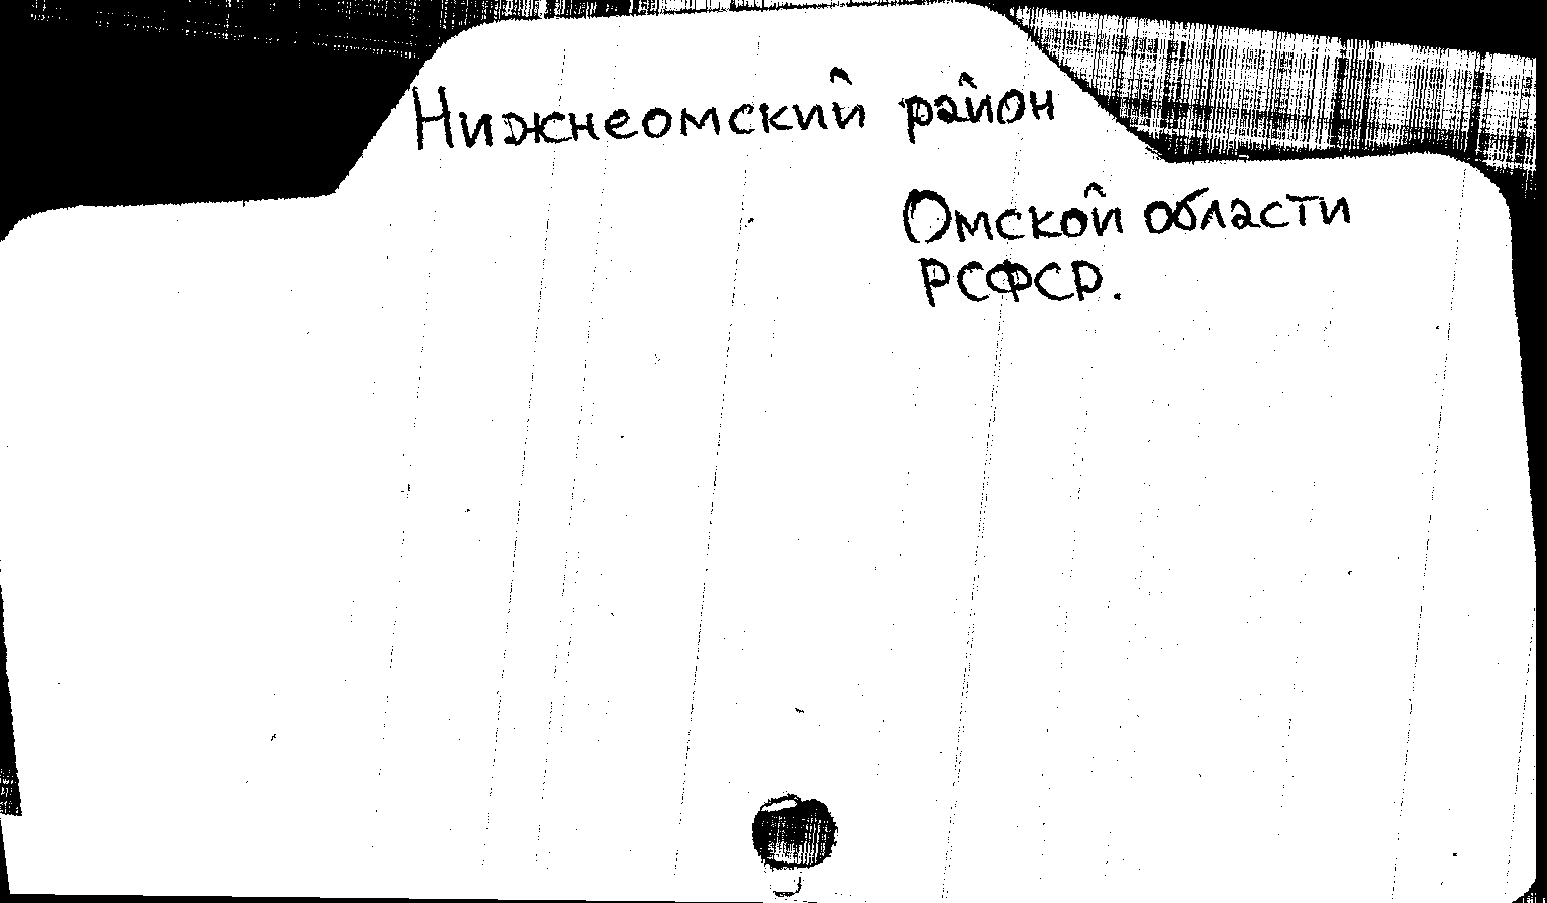 Нижнеомский район
Омской области
РСФСР.